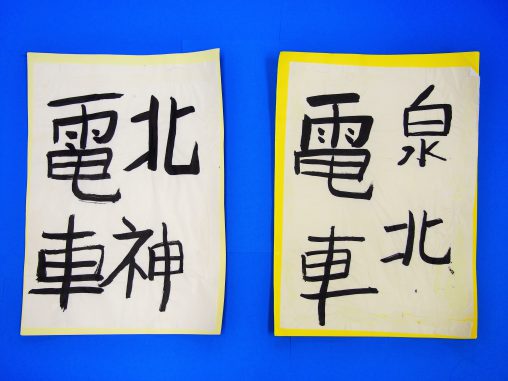 北神
電車
泉北
電車